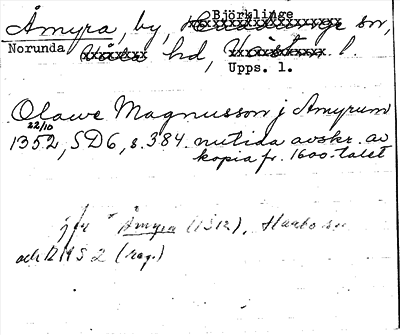 Björklinge
Åmyra, by, sn,
Norunda hd, l.
Upps. l.
Olawe Magnusson j Amyrum
22/10
1352, SD6, s. 384. nutida avskr. av
kopia fr. 1600-talet
jfr Åmyra (1312), Haabo sn
och